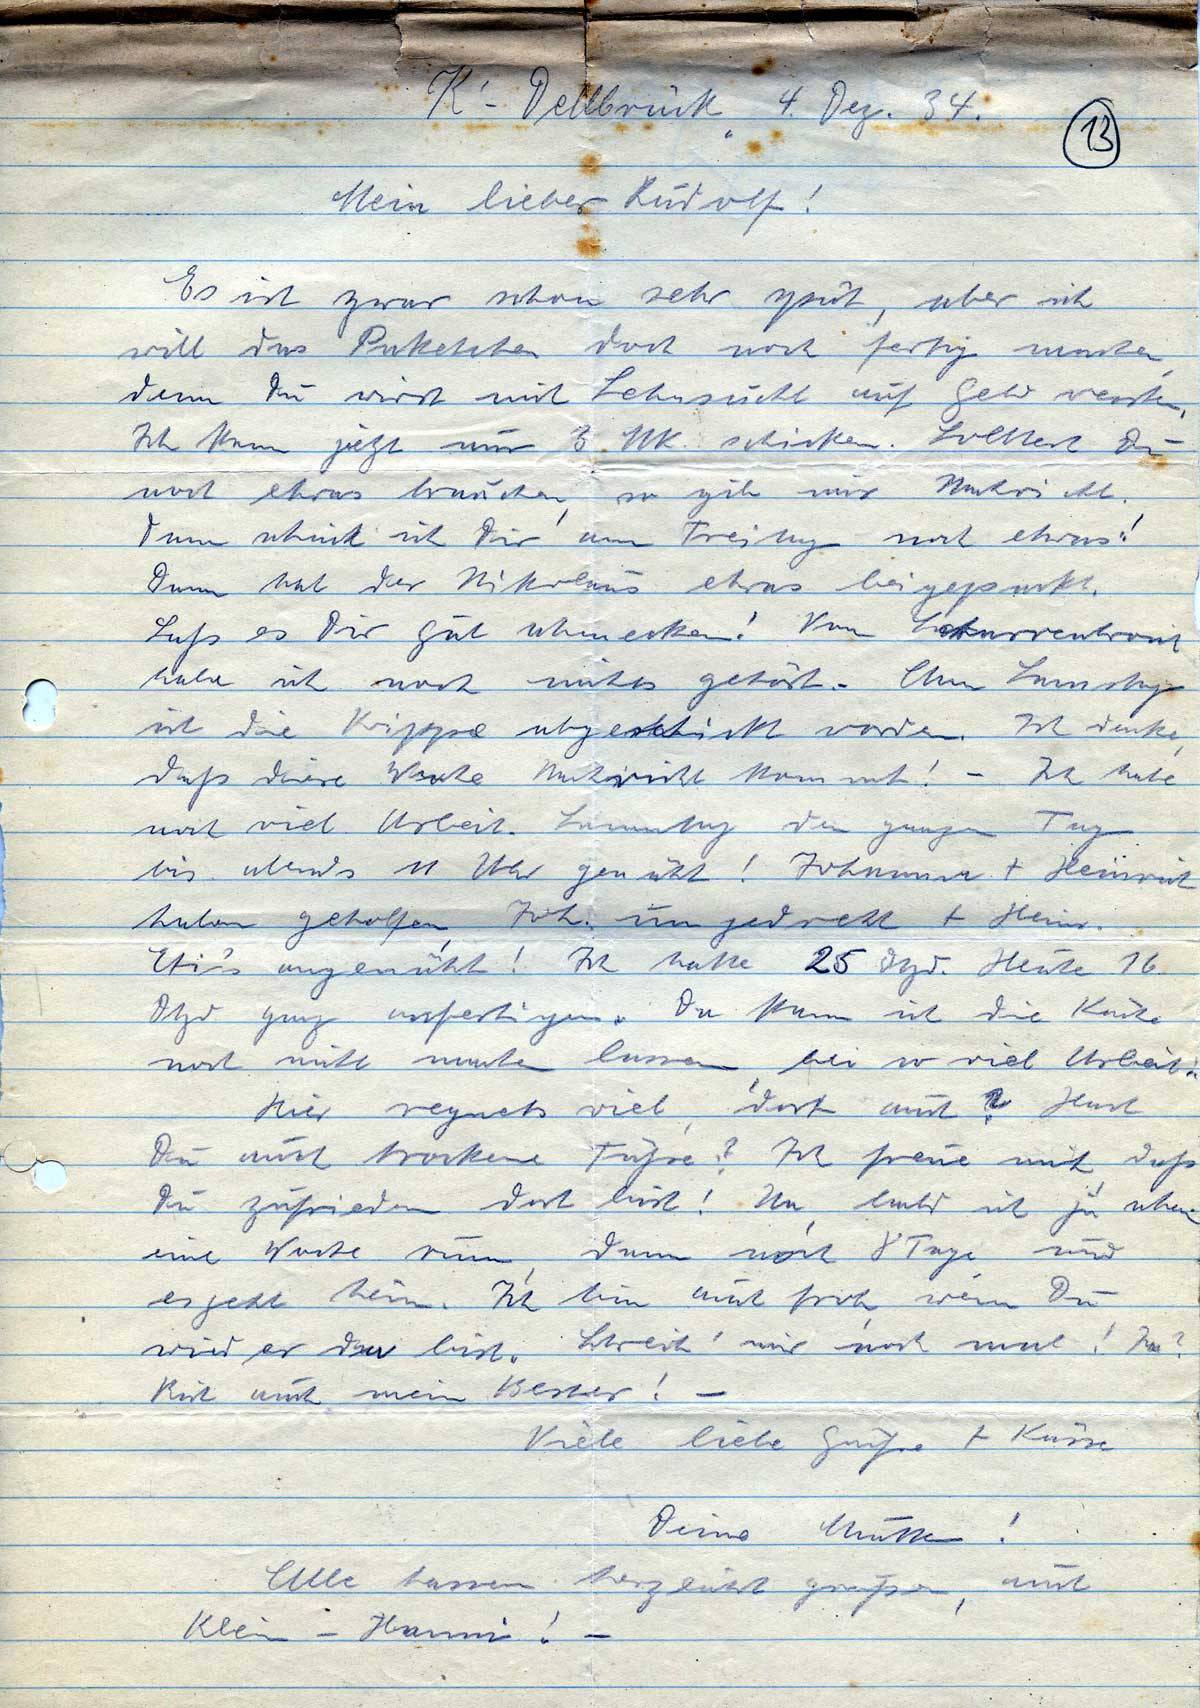 K'- Dellbrück, 4. Dez. 34.
13
Mein lieber Rudolf!
Es ist zwar schon sehr spät, aber ich
will das Paketchen doch noch fertig machen,
denn Du wirst mit Sehnsucht auf Geld warten.
Ich kann jetzt nur 3 Mk. schicken. Solltest Du
noch etwas brauchen, so gib mir Nachricht.
Dann schick ich Dir am Freitag noch etwas!
Dann hat der Nikolaus etwas beigepackt.
Laß es Dir gut schmecken! Von
habe ich noch nichts gehört. - Am Samstag
ist die Krippe abgeschickt worden. Ich denke,
daß diese Woche Nachricht kommt! - Ich habe
noch viel Arbeit. Samstag den ganzen Tag
bis abends 11 Uhr genäht! Johanna + Heinrich
haben geholfen, Joh. umgedreht + Heinr.
Eti's angenäht! Ich hatte 25 Dtzd. Heute 16
Dtzd ganz anfertigen. Da kann ich die Küche
noch nicht machen lassen, bei so viel Arbeit.
Hier regnets viel, dort auch? Hast
Du auch trockene Füße? Ich freue mich, daß
Du zufrieden dort bist! Na, bald ist ja schon
eine Woche rum, dann noch 8 Tage und
es geht heim. Ich bin auch froh, wenn Du
wieder da bist. Schreib' mir noch mal! Ja?
Bist auch mein Bester! -
Viele liebe Grüße + Küsse
Deine Mutter!
Alle lassen herzlichst grüßen, auch
Klein - Hanni! -